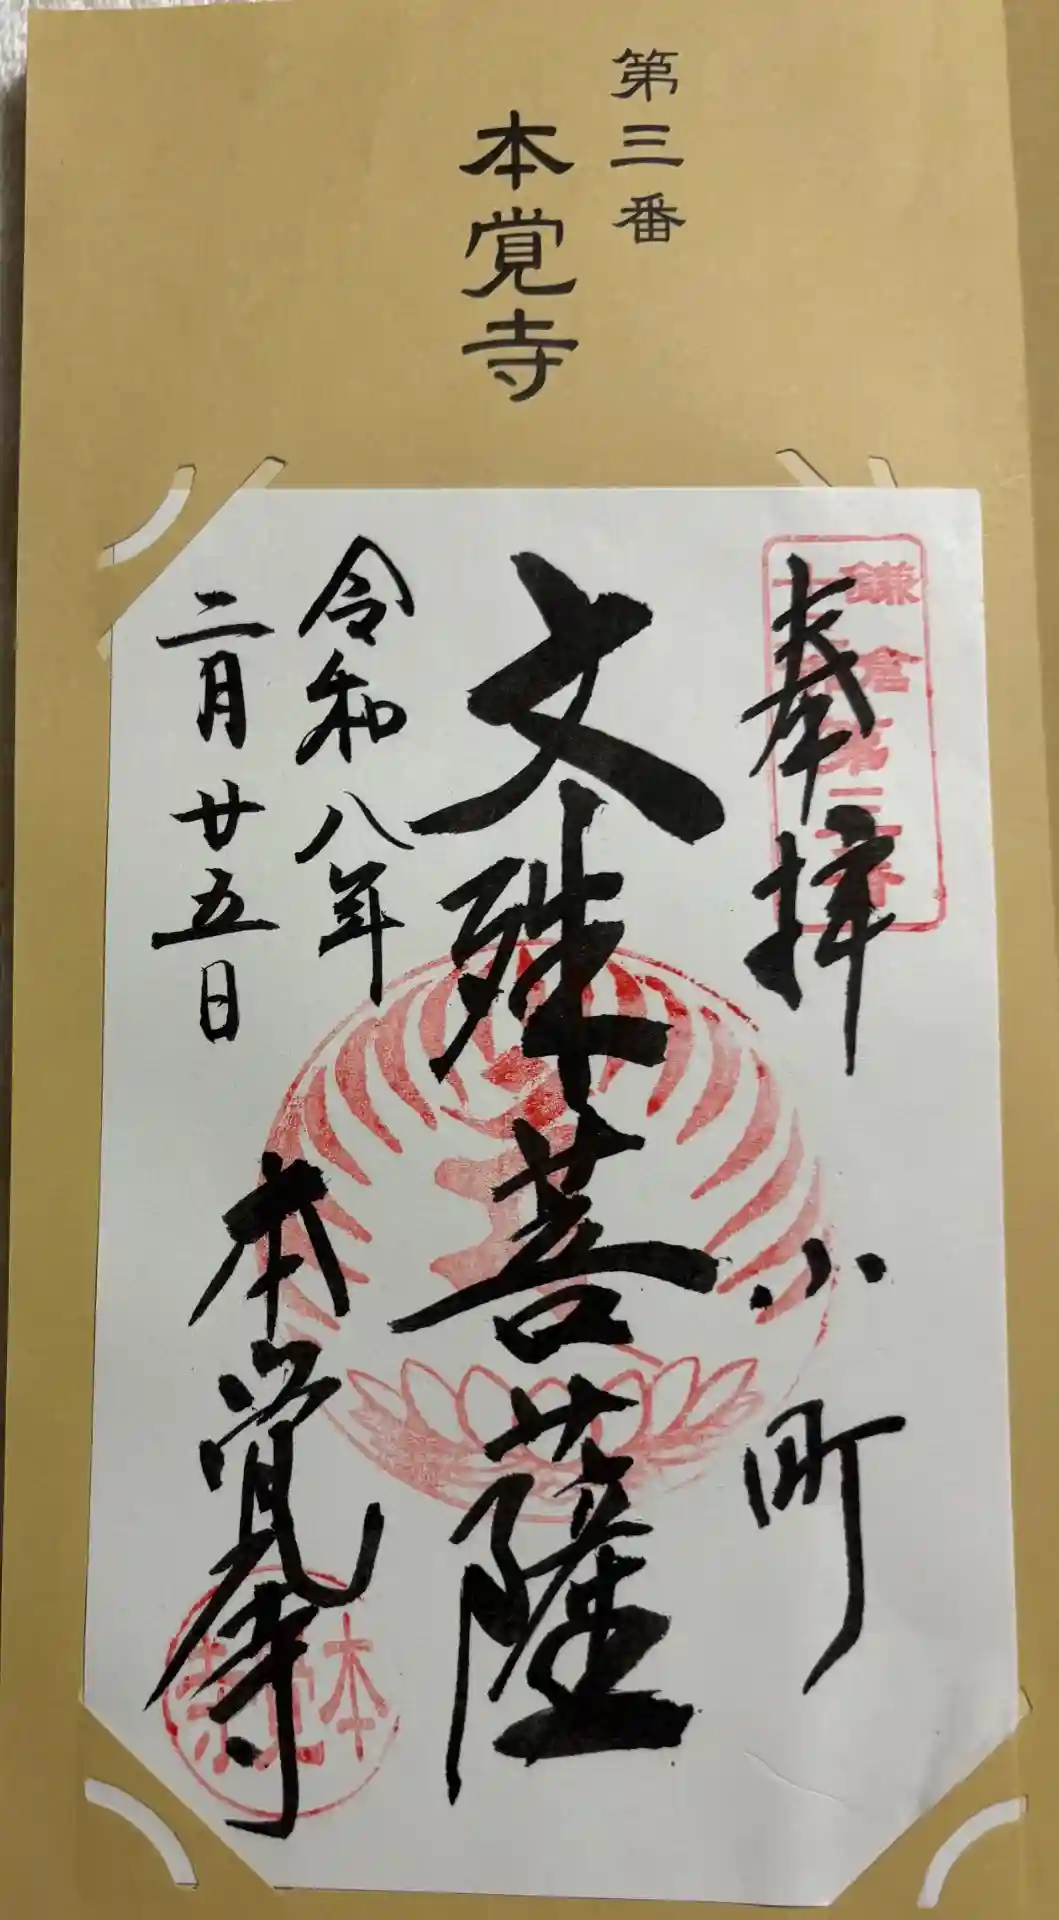 第三番
本覚寺
鎌倉
十三佛第三番
奉拝
小町
文殊菩薩
令和八年
二月廿五日
本覚寺
本覚寺